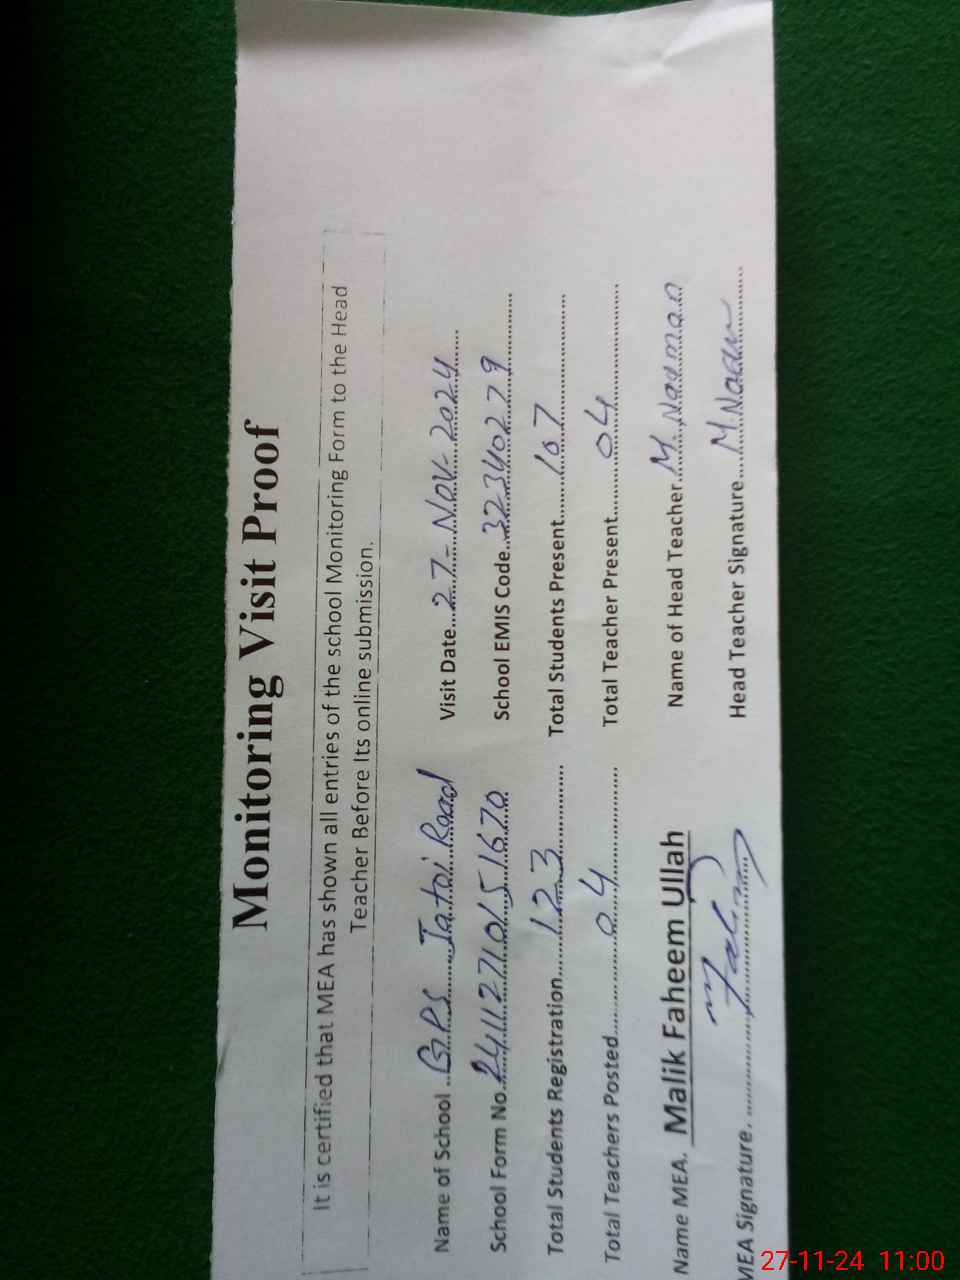 Monitoring Visit Proof
It is certified that MEA has shown all entries of the school Monitoring Form to the Head
Teacher Before Its online submission.
Name of School ..GPS Jatoi Road Visit Date...27-Nov-2024......
School Form No.24112710151670 School EMIS Code..32340279
Total Students Registration......123 Total Students Present......107
Total Teachers Posted......04 Total Teacher Present......04
Name MEA. Malik Faheem Ullah Name of Head Teacher..M. Nasman
MEA Signature. Head Teacher Signature....M.
27-11-24 11:00